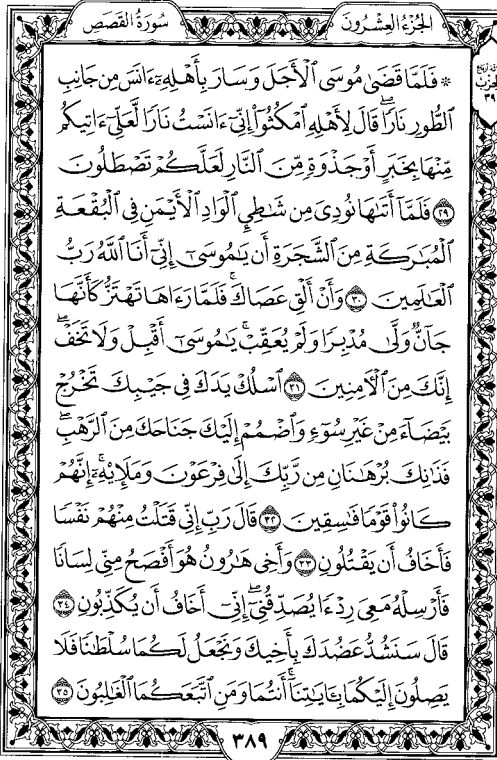 الجزء العشرون
سورة القصص
* فَلَمَّا قَضَىٰ مُوسَى ٱلْأَجَلَ وَسَارَ بِأَهْلِهِۦٓ ءَانَسَ مِن جَانِبِ
ٱلطُّورِ نَارًا ۖ قَالَ لِأَهْلِهِ ٱمْكُثُوٓا۟ إِنِّىٓ ءَانَسْتُ نَارًا لَّعَلِّىٓ ءَاتِيكُم
مِّنْهَا بِخَبَرٍ أَوْ جَذْوَةٍ مِّنَ ٱلنَّارِ لَعَلَّكُمْ تَصْطَلُونَ
٢٩ فَلَمَّآ أَتَىٰهَا نُودِىَ مِن شَٰطِئِ ٱلْوَادِ ٱلْأَيْمَنِ فِى ٱلْبُقْعَةِ
ٱلْمُبَٰرَكَةِ مِنَ ٱلشَّجَرَةِ أَن يَٰمُوسَىٰٓ إِنِّىٓ أَنَا ٱللَّهُ رَبُّ
ٱلْعَٰلَمِينَ ٣٠ وَأَنْ أَلْقِ عَصَاكَ ۖ فَلَمَّا رَءَاهَا تَهْتَزُّ كَأَنَّهَا
جَآنٌّ وَلَّىٰ مُدْبِرًا وَلَمْ يُعَقِّبْ ۚ يَٰمُوسَىٰٓ أَقْبِلْ وَلَا تَخَفْ ۖ
إِنَّكَ مِنَ ٱلْءَامِنِينَ ٣١ ٱسْلُكْ يَدَكَ فِى جَيْبِكَ تَخْرُجْ
بَيْضَآءَ مِنْ غَيْرِ سُوٓءٍ وَٱضْمُمْ إِلَيْكَ جَنَاحَكَ مِنَ ٱلرَّهْبِ ۖ
فَذَٰنِكَ بُرْهَٰنَانِ مِن رَّبِّكَ إِلَىٰ فِرْعَوْنَ وَمَلَإِي۟هِۦٓ ۚ إِنَّهُمْ
كَانُوا۟ قَوْمًا فَٰسِقِينَ ٣٢ قَالَ رَبِّ إِنِّى قَتَلْتُ مِنْهُمْ نَفْسًا
فَأَخَافُ أَن يَقْتُلُونِ ٣٣ وَأَخِى هَٰرُونُ هُوَ أَفْصَحُ مِنِّى لِسَانًا
فَأَرْسِلْهُ مَعِىَ رِدْءًا يُصَدِّقُنِىٓ ۖ إِنِّىٓ أَخَافُ أَن يُكَذِّبُونِ ٣٤
قَالَ سَنَشُدُّ عَضُدَكَ بِأَخِيكَ وَنَجْعَلُ لَكُمَا سُلْطَٰنًا فَلَا
يَصِلُونَ إِلَيْكُمَا ۚ بِـَٔايَٰتِنَآ أَنتُمَا وَمَنِ ٱتَّبَعَكُمَا ٱلْغَٰلِبُونَ ٣٥
٣٨٩